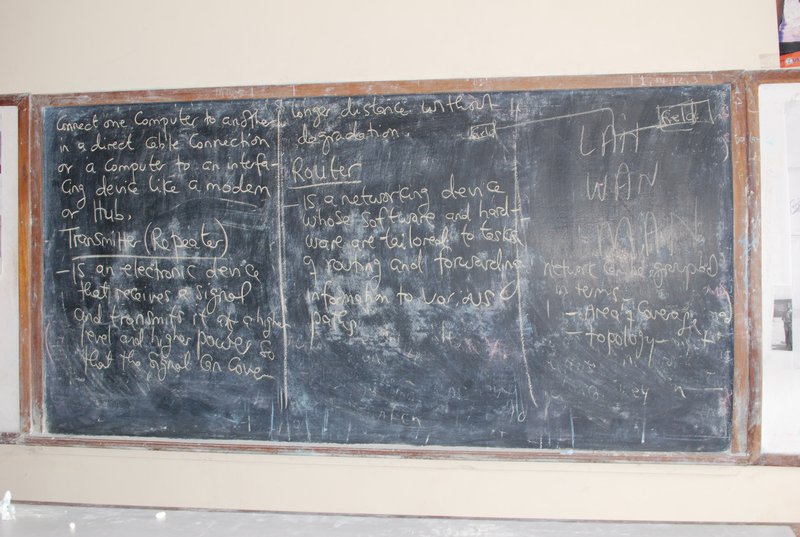 Connect one Computer to another
in a direct Cable Connection
or a Computer to an interfa-
cing device like a modem
or Hub.
Transmitter (Repeater)
- Is an electronic device
that receives a signal
and transmits it at a higher
level and higher power, so
that the signal can cover
longer distance without
degradation.
Router
- Is a networking device
whose software and hard-
ware are tailored to tasks
of routing and forwarding
information to various
paths
field
field
LAN
WAN
MAN
Network can be grouped
in terms
- Area Coverage
- topology